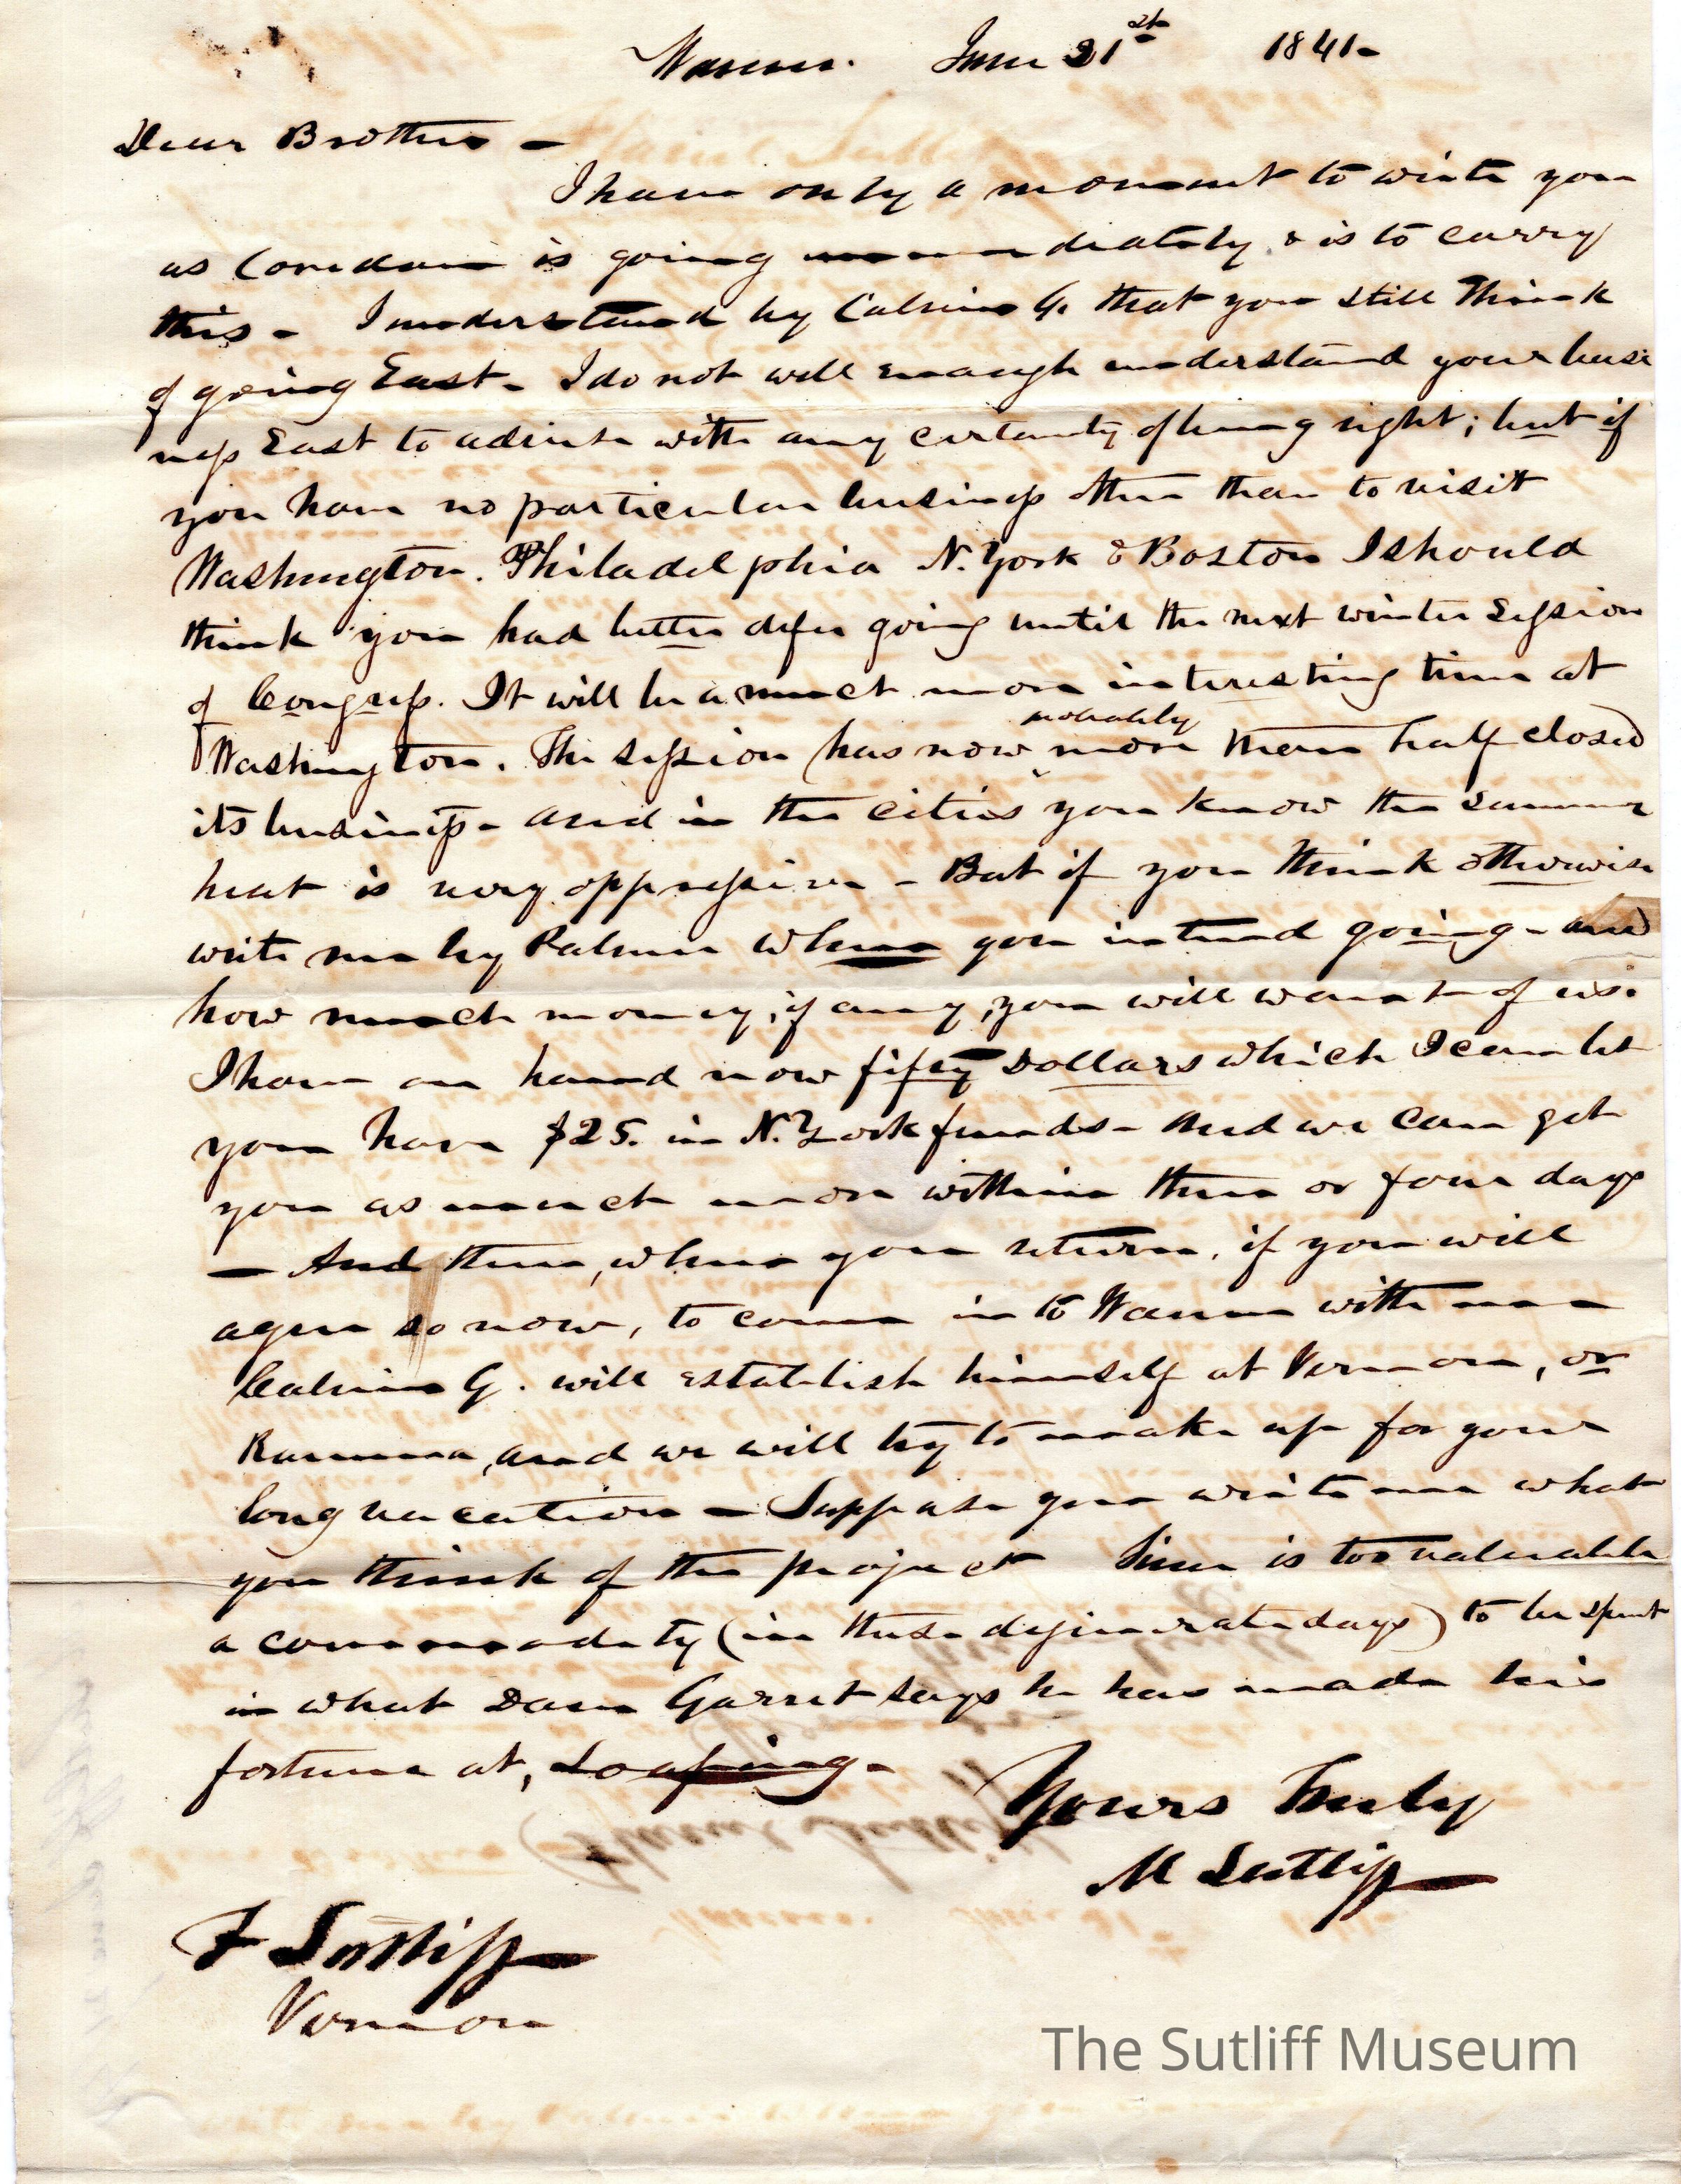 Warren. June 21st 1841-
Dear Brother -
I have only a moment to write you
as is going immediately & is to carry
this - I understand by Calvin G. that you still think
of going East - I do not well enough understand your busi
ness East to advise with any certainty of being right; but if
you have no particular business other than to visit
Washington. Philadelphia N. York & Boston I should
think you had better defer going until the next winter Session
of Congress. It will be a much more interesting time at
probably
Washington. The session has now more than half closed
its business - and in the cities you know the summer
heat is very oppressive - But if you think otherwise
write me by Palmer when you intend going - and
how much money, if any, you will want of us.
I have on hand now fifty Dollars which I can let
you have $25. in N. York funds - And we can get
you as much more within three or four days
- And then, when you return, if you will
agree so now, to come in to Warren with me
Calvin G. will establish himself at Vernon, or
Ravenna, and we will try to make up for your
long vacation - Suppose you write me what
you think of the project Time is too valuable
a commodity (in these degenerate days) to be spent
in what Garret says he has made his
fortune at, Loafing -
Yours Truly
M Sutliff
F Sutliff
Vernon
The Sutliff Museum